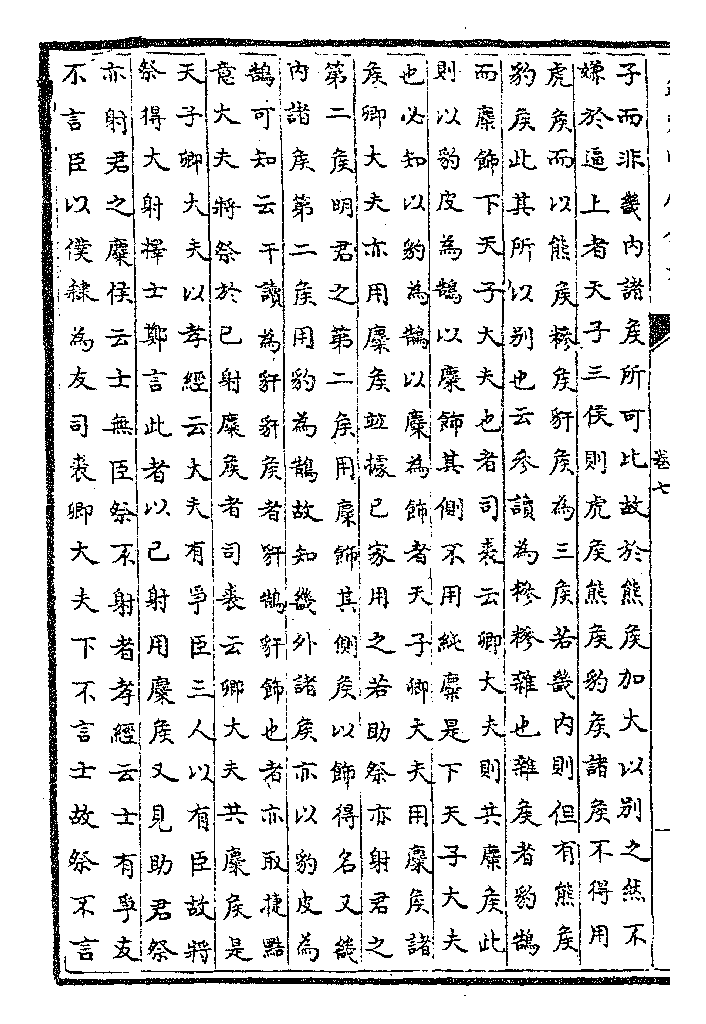 子而非畿內諸矦所可比故於熊矦加大以别之然不
嫌於逼上者天子三侯則虎矦熊矦豹矦諸矦不得用
虎矦而以熊矦糝矦豻矦為三矦若畿內則但有熊矦
豹矦此其所以别也云參讀為糝糝雜也雜矦者豹鵠
而麋飾下天子大夫也者司裘云卿大夫則共麋矦此
則以豹皮為鵠以麋飾其側不用純麋是下天子大夫
也必知以豹為鵠以麋為飾者天子卿大夫用麋矦諸
矦卿大夫亦用麋矦並據己家用之若助祭亦射君之
第二矦明君之第二矦用麋飾其側矦以飾得名又畿
內諸矦第二矦用豹為鵠故知畿外諸矦亦以豹皮為
鵠可知云干讀為豻豻矦者豻鵠豻飾也者亦取捷點
意大夫將祭於己射麋矦者司裘云卿大夫共麋矦是
天子卿大夫以孝經云大夫有爭臣三人以有臣故將
祭得大射擇士鄭言此者以己射用麋矦又見助君祭
亦射君之麋侯云士無臣祭不射者孝經云士有爭友
不言臣以僕隸為友司裘卿大夫下不言士故祭不言
卷七